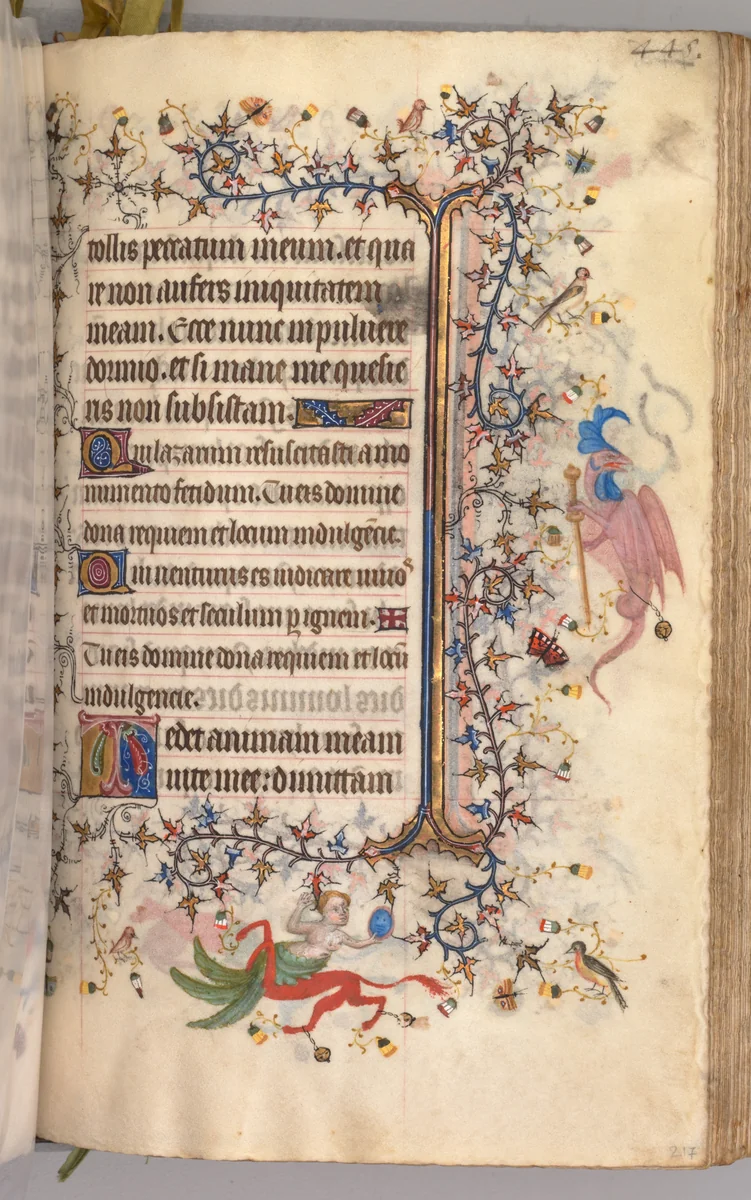 445.
tollis peccatum meum. et qua
re non aufers iniquitatem
meam. Ecce nunc in puluere
dormio. et si mane me quesie
ris non subsistam.
Qui lazarum resuscitasti a mo
numento fetidum. Tu eis domine
dona requiem et locum indulgẽcie.
Qui uenturus es iudicare uiuos
et mortuos et seculum p ignem.
Tu eis domine dona requiem et locũ
indulgencie.
Tedet animam meam
uite mee: dimittam
217